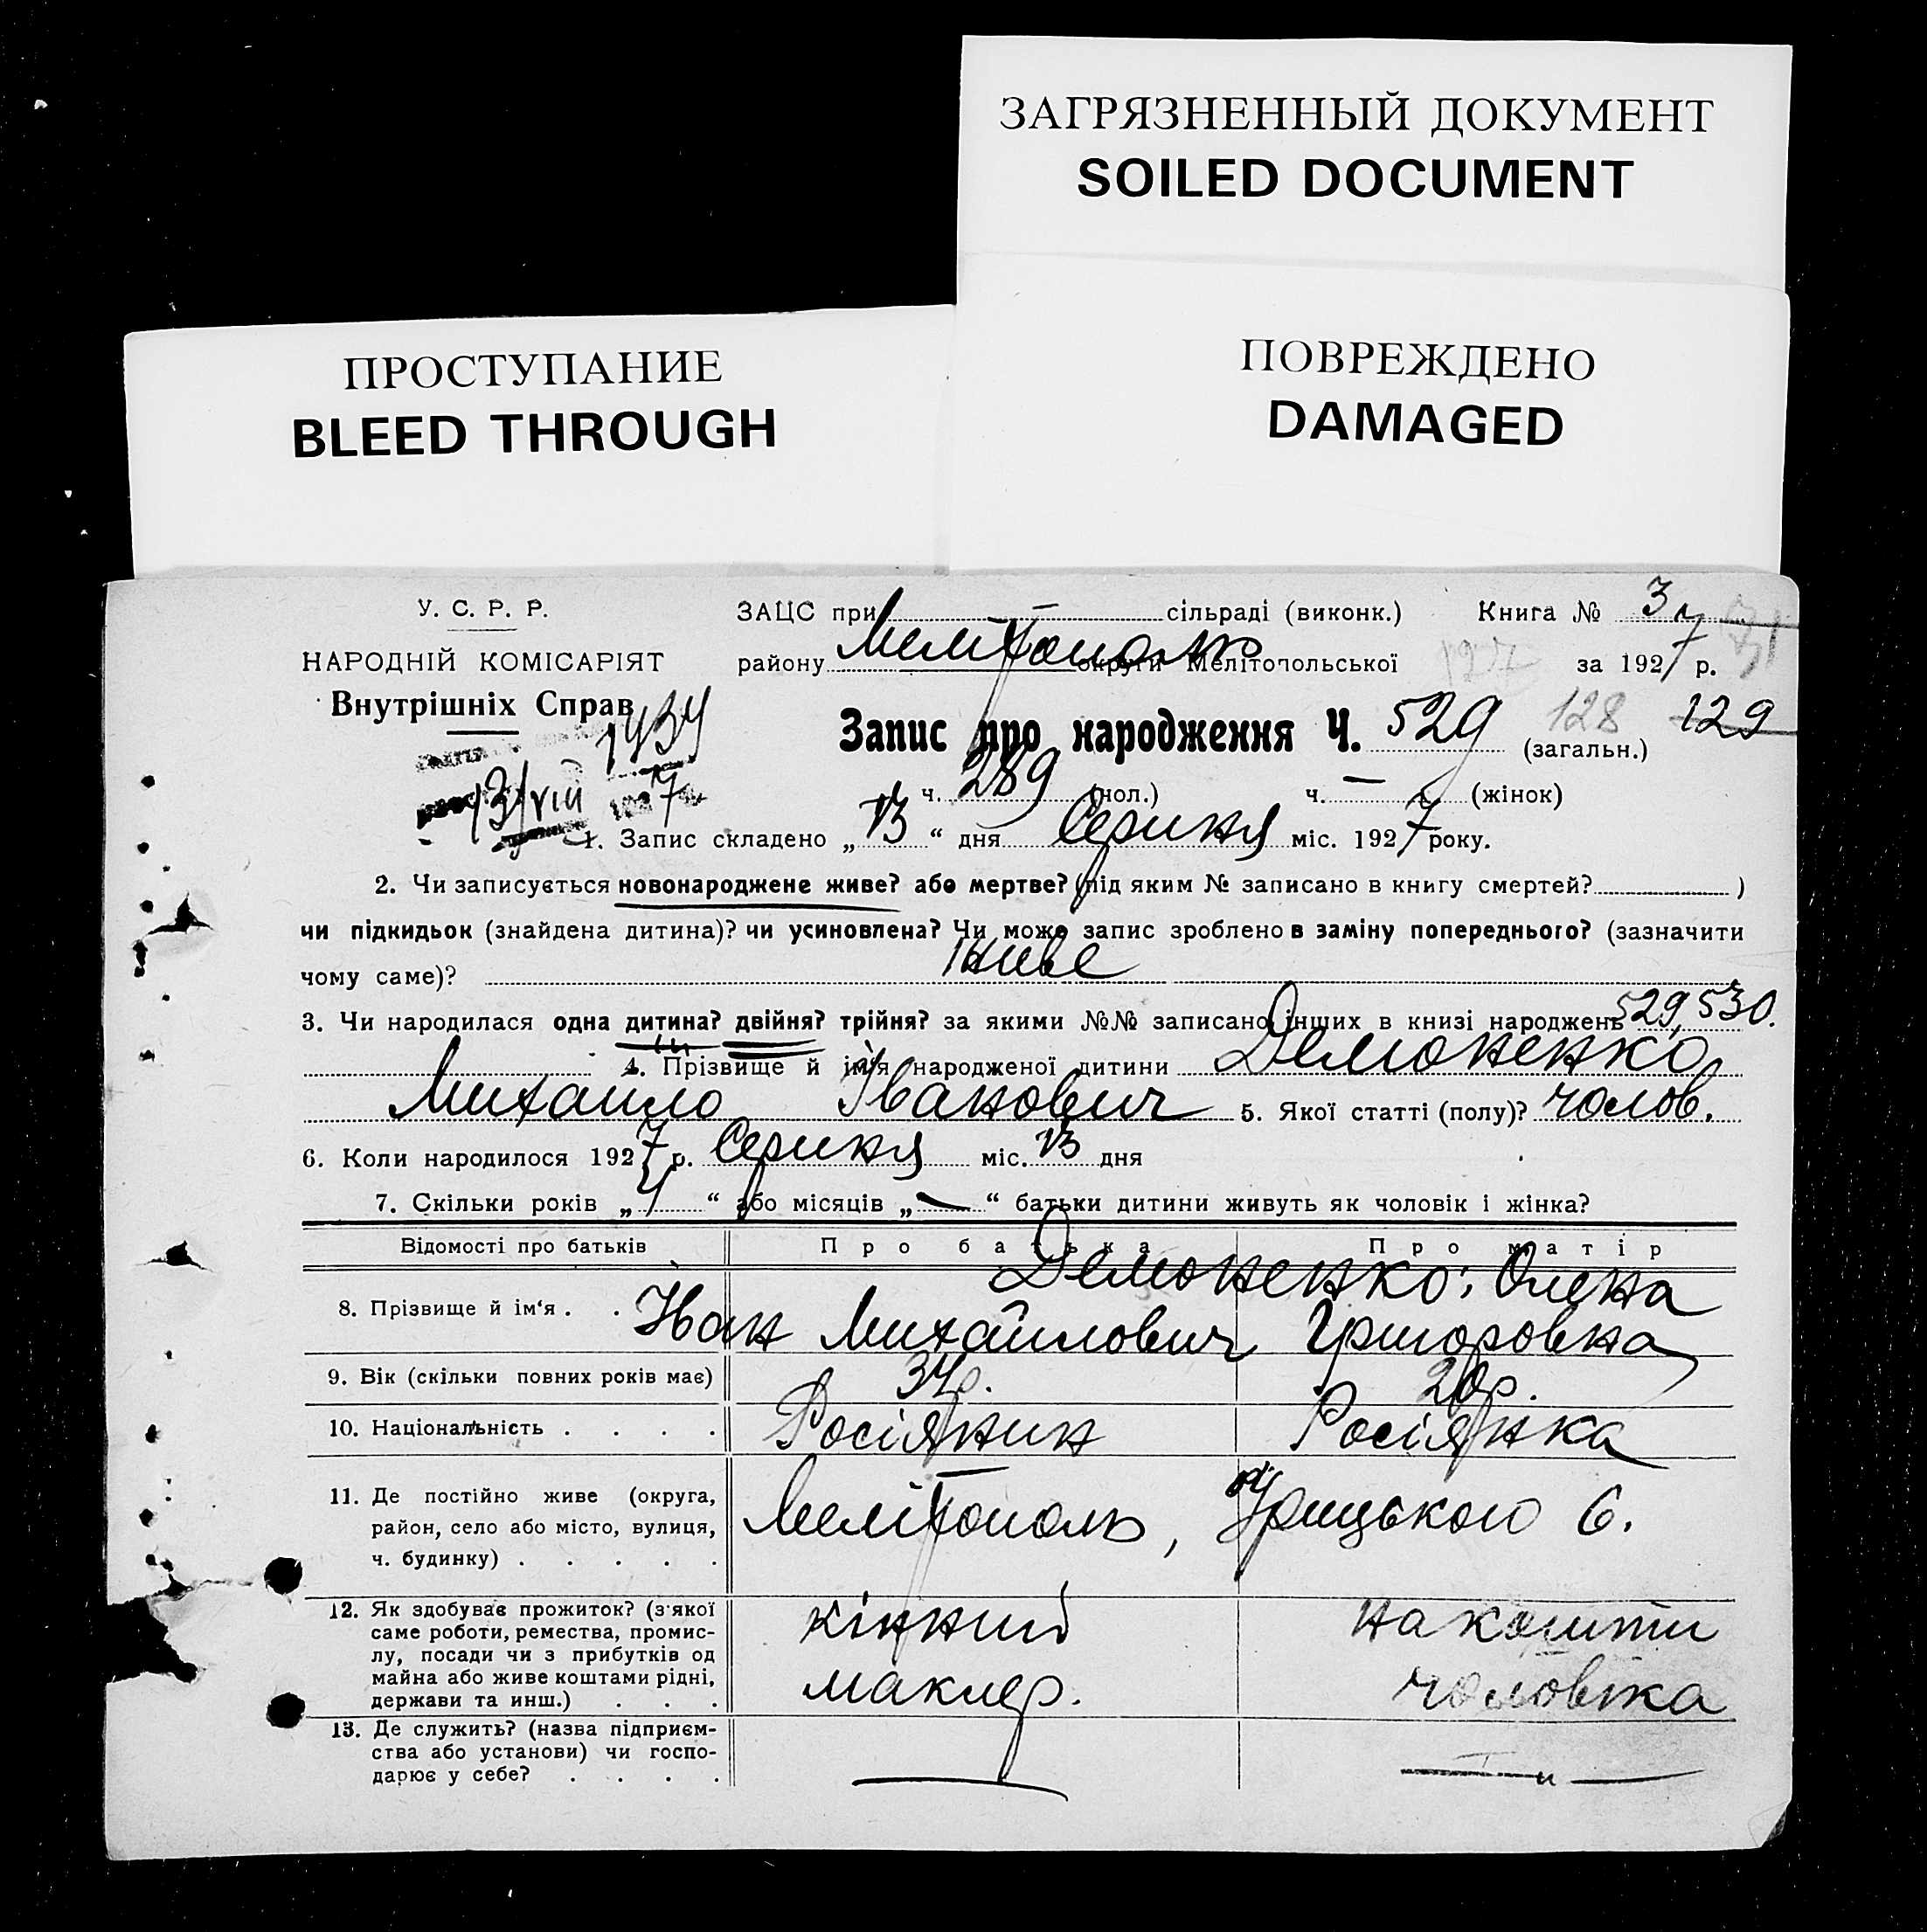 ЗАГРЯЗНЕННЫЙ ДОКУМЕНТ
SOILED DOCUMENT
ПРОСТУПАНИЕ
BLEED THROUGH
ПОВРЕЖДЕНО
DAMAGED
У. С. Р. Р.
НАРОДНІЙ КОМІСАРІЯТ
Внутрішніх Справ
ЗАЦС при — сільраді (виконк.) Книга №
району Мелітополь округи Мелітопольської за 1927 р.
Запис про народження Ч. 529 (загальн.) 128 129
ч. 289 (чол.) ч. — (жінок)
1. Запис складено „13“ дня Серпня міс. 1927 року.
2. Чи записується новонароджене живе? або мертве? (під яким № записано в книгу смертей? )
чи підкидьок (знайдена дитина)? чи усиновлена? Чи може запис зроблено в заміну попереднього? (зазначити
чому саме)? живе
3. Чи народилася одна дитина? двійня? трійня? за якими №№ записано інших в книзі народжень 529, 530.
4. Прізвище й ім'я народженої дитини Демоненко
Михайло Іванович 5. Якої статті (полу)? чолов.
6. Коли народилося 1927 р. Серпня міс. 13 дня
7. Скільки років „ “ або місяців „—“ батьки дитини живуть як чоловік і жінка?
Відомості про батьків Про батька Про матір
8. Прізвище й ім'я . . Демоненко: Олена
Іван Михайлович Григоровна
9. Вік (скільки повних років має) 34 р. 20 р.
10. Національність . . . . Росіянин Росіянка
11. Де постійно живе (округа, район, село або місто, вулиця, ч. будинку) . . . . . Мелітополь, Урицького 6.
12. Як здобуває прожиток? (з якої саме роботи, ремества, промислу, посади чи з прибутків од майна або живе коштами рідні, держави та инш.) . . . кінний маклер. на кошти чоловіка
13. Де служить? (назва підприємства або установи) чи господарює у себе? . . . .